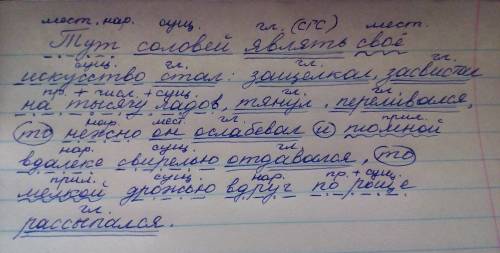 мест. нар. сущ. гл. (СГС) мест.
Тут соловей являть своё
сущ. гл. гл. гл.
искусство стал: защелкал, засвистал
пр. + числ. + сущ. гл. гл.
на тысячу ладов, тянул, переливался,
нар. мест. гл. прил.
то нежно он ослабевал и томной
нар. сущ. гл.
вдалеке свирелью отдавался, то
прил. сущ. нар. пр. + сущ.
мелкой дробью вдруг по роще
гл.
рассыпался.